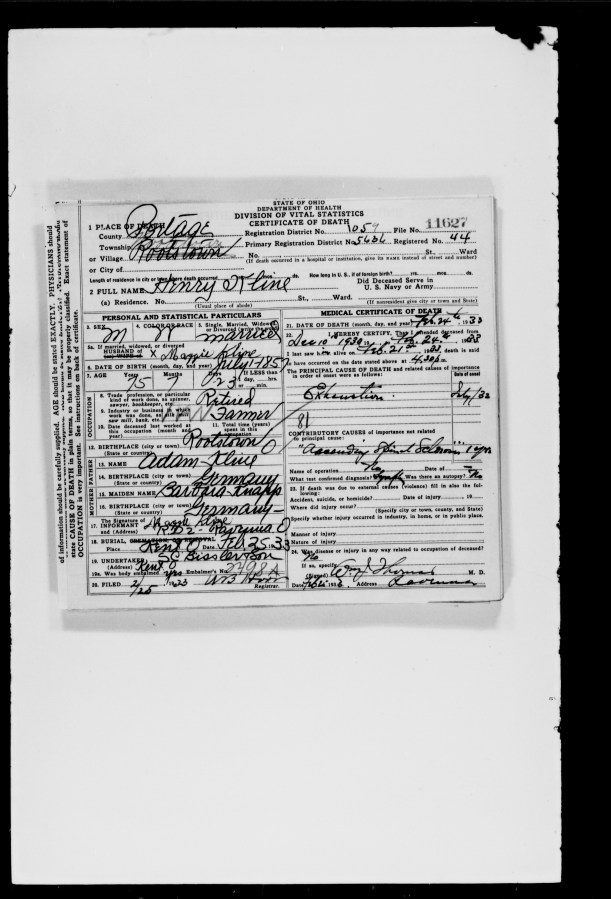 STATE OF OHIO
DEPARTMENT OF HEALTH
DIVISION OF VITAL STATISTICS
CERTIFICATE OF DEATH
1 PLACE OF DEATH
County Portage Registration District No. 1059 File No. 11627
Township Rootstown Primary Registration District No. 5636 Registered No. 44
or Village No. St., Ward
(If death occurred in a hospital or institution, give its name instead of street and number)
or City of
Length of residence in city or town where death occurred mos. ds. How long in U. S., if of foreign birth? yrs. mos. ds.
2 FULL NAME Henry Kline Did Deceased Serve in U. S. Navy or Army
(a) Residence. No. St., Ward.
(Usual place of abode) (If nonresident give city or town and State)
PERSONAL AND STATISTICAL PARTICULARS
3. SEX M 4. COLOR OR RACE W 5. Single, Married, Widowed, or Divorced married
5a. If married, widowed, or divorced
HUSBAND of x Maggie Kline
6. DATE OF BIRTH (month, day, and year) July 1 1857
7. AGE Years 75 Months 7 Days 23 If LESS than 1 day, hrs. or min.
OCCUPATION
8. Trade, profession, or particular kind of work done, as spinner, sawyer, bookkeeper, etc. Retired
9. Industry or business in which work was done, as silk mill, saw mill, bank, etc. Farmer
10. Date deceased last worked at this occupation (month and year)
11. Total time (years) spent in this occupation
12. BIRTHPLACE (city or town) Rootstown O
(State or country)
FATHER
13. NAME Adam Kline
14. BIRTHPLACE (city or town) Germany
(State or country)
MOTHER
15. MAIDEN NAME Barbara Knapp
16. BIRTHPLACE (city or town) Germany
(State or country)
17. The Signature of INFORMANT Kline
and (Address) Ravenna O
18. BURIAL, CREMATION OR REMOVAL
Place Kent O Date Feb. 25. 33
19. UNDERTAKER S C Bissler & Son
(Address) Kent O
19a. Was body embalmed yes Embalmer's No. 2498A
20. FILED 2/25 1933 Registrar.
MEDICAL CERTIFICATE OF DEATH
21. DATE OF DEATH (month, day, and year) Feb. 24 1933
22. I HEREBY CERTIFY, That I attended deceased from
Dec 10 1930, to Feb. 24 1933
I last saw h alive on Feb. 21 death is said
to have occurred on the date stated above at m.
The PRINCIPAL CAUSE OF DEATH and related causes of importance in order of onset were as follows:
Date of onset
Exhaustion
81
CONTRIBUTORY CAUSES of importance not related to principal cause:
Name of operation Date of
What test confirmed diagnosis? Was there an autopsy? No
23. If death was due to external causes (violence) fill in also the following:
Accident, suicide, or homicide? Date of injury 19
Where did injury occur?
(Specify city or town, county, and State)
Specify whether injury occurred in industry, in home, or in public place.
Manner of injury
Nature of injury
24. Was disease or injury in any way related to occupation of deceased? No
If so, specify
(Signed) Wm J Thomas M. D.
Address Ravenna
of information should be carefully supplied. AGE should be stated EXACTLY. PHYSICIANS should
state CAUSE OF DEATH in plain terms, so that it may be properly classified. Exact statement of
OCCUPATION is very important. See instructions on back of certificate.